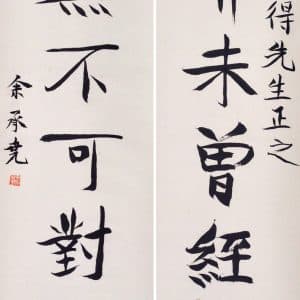 得先生正之
未曾經
無不可對
余承堯